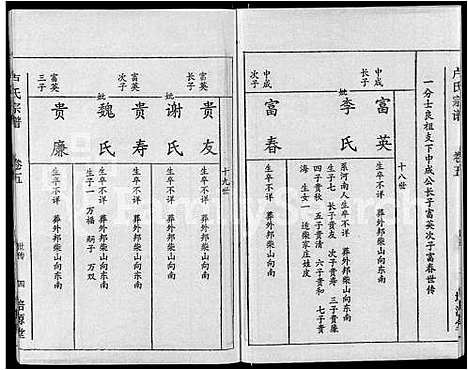 卢氏宗谱 卷五
一分士良祖支下中成公长子富英次子富春世传
十八世
中成
长子
富英
生卒不详 葬外邦柴山向东南
妣
李氏
系河南人生卒不详 葬外邦柴山向东南
生子七 长子贵友 次子贵寿 三子贵廉
四子贵秋 五子贵清 六子贵和 七子贵
海 生女一 适柴家庄姓皮
中成
次子
富春
生卒不详 葬外邦柴山向东南
十九世
富英
长子
贵友
生卒不详 葬外邦柴山向东南
妣
谢氏
生卒不详 葬外邦柴山向东南
富英
次子
贵寿
生卒不详 葬外邦柴山向东南
妣
魏氏
生卒不详 葬外邦柴山向东南
生子一 万福 嗣子 万双
富英
三子
贵廉
生卒不详 葬外邦柴山向东南
卢氏宗谱
卷五
世传
四
培源堂